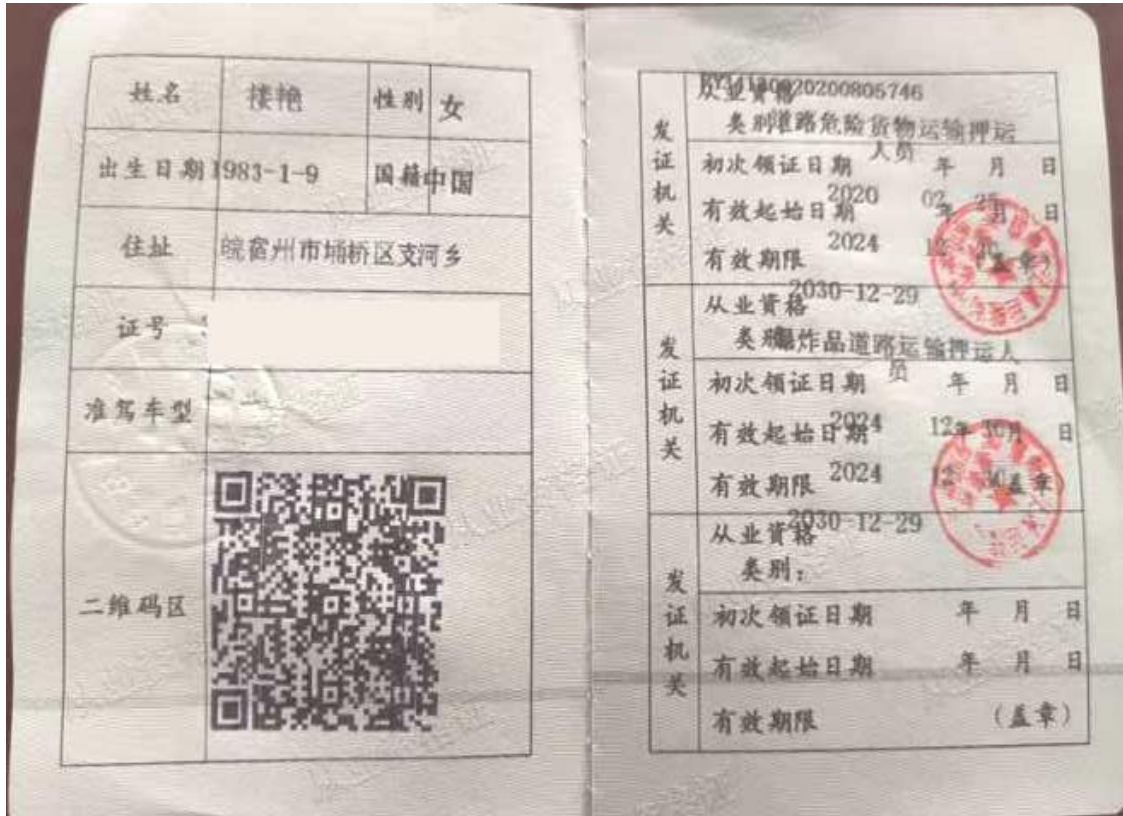 姓名 接艳 性别 女
出生日期 1983-1-9 国籍 中国
住址 皖宿州市埇桥区支河乡
证号
准驾车型
二维码区
发证机关
20200805746
从业资格
类别 道路危险货物运输押运
人员
初次领证日期 年 月 日
2020 02 25
有效起始日期 年 月 日
2024 12 30
有效期限 (盖章)
2030-12-29
发证机关
从业资格
类别 爆炸品道路运输押运人
员
初次领证日期 年 月 日
2024 12 30
有效起始日期 年 月 日
2024 12 30
有效期限 (盖章)
2030-12-29
发证机关
从业资格
类别:
初次领证日期 年 月 日
有效起始日期 年 月 日
有效期限 (盖章)